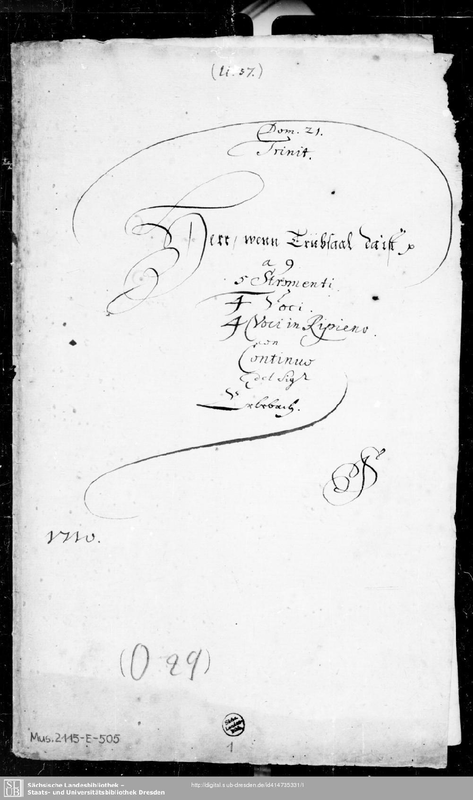 (U. 37.)
Dom. 21.
Trinit.
Herr, wenn Trübsaal da ist
a 9
5 Stromenti.
4 Voci.
4 Voci in Ripieno.
con
Continuo
del Sigr
Erlebach.
1710.
(O 29)
Mus. 2115-E-505
1
Sächsische Landesbibliothek –
Staats- und Universitätsbibliothek Dresden
http://digital.slub-dresden.de/id414735331/1